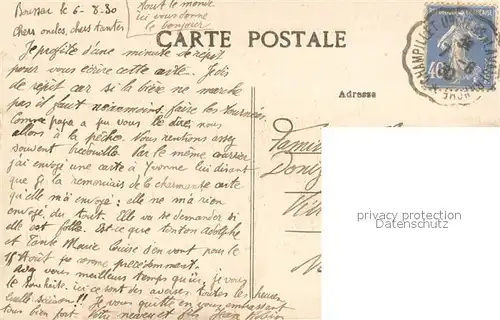 Boussac le 6-8-30
tout le monde
ici vous donne
le bonjour
chers oncles, chers tantes
CARTE POSTALE
Je profite d'une minute de répit
pour vous écrire cette carte. Je dis
de répit car si la bière ne marche
pas il faut néanmoins faire les tournées
Comme papa a pu vous le dire, nous
allons à la pêche. Nous rentrons assez
souvent bredouille. Par le même courrier
j'ai envoyé une carte à Yvonne lui disant
que je la remerciais de la charmante carte
qu'elle m'a envoyé : elle ne m'a rien
envoyé du tout. Elle va se demander si
elle est folle. Est-ce que tonton Adolphe
et Tante Marie Louise s'en vont pour le
15 Août comme précédemment.
Avez vous meilleurs temps qu'ici, je vous
le souhaite. ici ce sont des averses toutes les heures
quelle saison!! Je vous quitte en vous embrassant
tous bien fort. Votre neveu et fils Jean
Adresse
40
privacy protection
Datenschutz